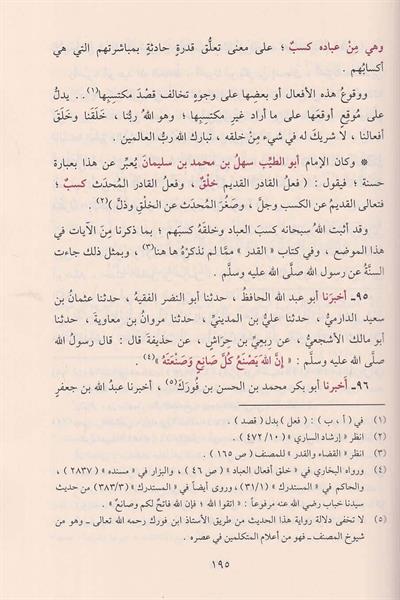 وهي مِنْ عباده كسبٌ ؛ على معنى تعلُّق قدرةٍ حادثةٍ بمباشرتهم التي هي
أكسابُهم .
ووقوعُ هذه الأفعال أو بعضِها على وجوهٍ تخالف قصْدَ مكتسِبِها(١).. يدلُّ
على مُوقِعٍ أوقعَها على ما أراد غيرِ مكتسِبِها ؛ وهو اللهُ ربُّنا ، خلَقَنا وخَلَقَ
أفعالنا ، لا شريكَ له في شيءٍ مِنْ خلقه ، تبارك اللهُ ربُّ العالمين .
* وكان الإمام أبو الطيِّب سهلُ بن محمد بن سليمانَ يُعبِّر عن هذا بعبارة
حسنة ؛ فيقول : ( فعلُ القادر القديم خلْقٌ ، وفعلُ القادر المُحدَث كسبٌ ؛
فتعالى القديمُ عن الكسب وجلَّ ، وصَغُرَ المُحدَث عن الخلْقِ وذلَّ )(٢).
وقد أثبتَ اللهُ سبحانه كسبَ العباد وخلقَهُ كسبَهم ؛ بما ذكرنا مِنَ الآيات في
هذا الموضع ، وفي كتاب « القدر » ممّا لم نذكرْهُ ها هنا(٣)، وبمثل ذلك جاءت
السنَّةُ عن رسول الله صلَّى الله عليه وسلَّم .
٩٥- أخبرَنا أبو عبد الله الحافظُ ، حدثنا أبو النضر الفقيهُ ، حدثنا عثمانُ بن
سعيد الدارميُّ ، حدثنا عليُّ بن المدينيِّ ، حدثنا مروانُ بن معاوية ، حدثنا
أبو مالك الأشجعيُّ ، عن رِبعيِّ بن حِرَاش ، عن حذيفةَ قال : قال رسولُ الله
صلَّى الله عليه وسلَّم : « إِنَّ اللهَ يَصْنَعُ كُلَّ صَانِعٍ وَصَنْعَتَهُ »(٤).
٩٦- أخبرنا أبو بكر محمد بن الحسن بن فُورَك(٥)، أخبرنا عبدُ الله بن جعفرٍ
(١) في ( أ ، ب ) : ( فعل ) بدل ( قصد ) .
(٢) انظر « إرشاد الساري » ( ٤٧٢/١٠ ) .
(٣) انظر « القضاء والقدر » للمصنف ( ص ١٦٥ ) .
(٤) ورواه البخاري في « خلق أفعال العباد » ( ص ٤٦ ) ، والبزار في « مسنده » ( ٢٨٣٧ ) ،
والحاكم في « المستدرك » ( ٣١/١ ) ، وروى أيضاً في « المستدرك » ( ٣٨٣/٣ ) من حديث
سيدنا خباب رضي الله عنه مرفوعاً : « اتقوا الله ؛ فإن الله فاتحٌ لكم وصانعٌ » .
(٥) لا تخفى دلالة رواية هذا الحديث من طريق الأستاذ ابن فورك رحمه الله تعالى ـ وهو من
شيوخ المصنف ـ فهو من أعلام المتكلمين في عصره .
١٩٥